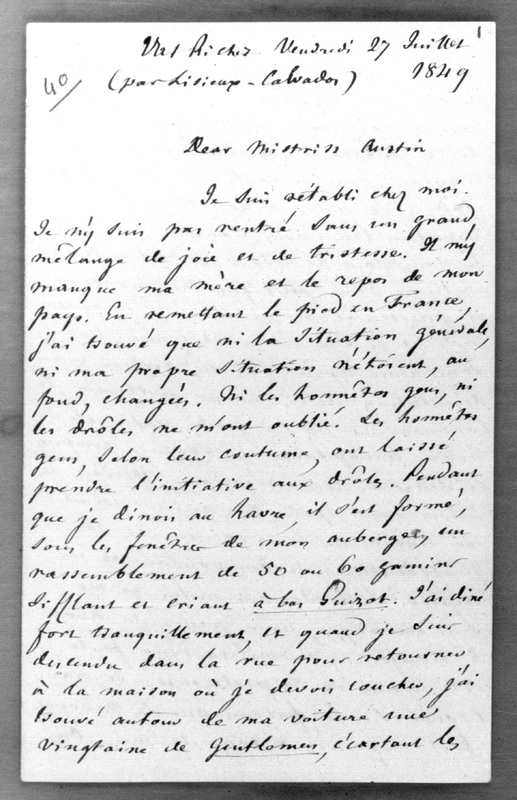 1
Val Richer Vendredi 27 Juillet
40
(par Lisieux - Calvados) 1849
Dear Mistriss Austin
Je suis rétabli chez moi.
Je n'y suis pas rentré sans un grand
mélange de joie et de tristesse. Il m'y
manque ma mère et le repos de mon
pays. En remettant le pied en France,
j'ai trouvé que ni la situation générale,
ni ma propre situation n'étoient, au
fond, changées. Ni les honnêtes gens, ni
les drôles ne m'ont oublié. Les honnêtes
gens, selon leur coutume, ont laissé
prendre l'initiative aux drôles. Pendant
que je dinois au havre, il s'est formé,
sous les fenêtres de mon auberge, un
rassemblement de 50 ou 60 gamins
sifflant et criant à bas Guizot. J'ai diné
fort tranquillement, et quand je suis
descendu dans la rue pour retourner
à la maison où je devois coucher, j'ai
trouvé autour de ma voiture une
vingtaine de Gentlemen, écartant les